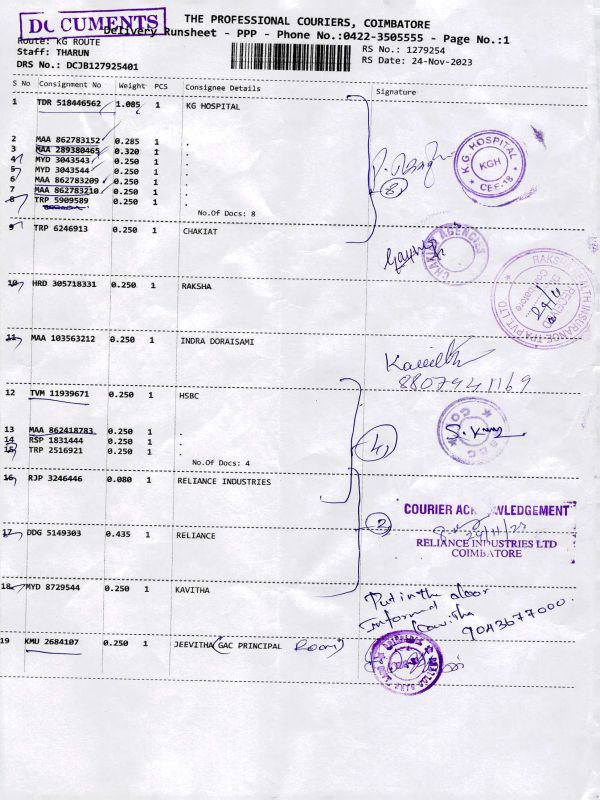 DOCUMENTS
THE PROFESSIONAL COURIERS, COIMBATORE
Delivery Runsheet - PPP - Phone No.:0422-3505555 - Page No.:1
Route: KG ROUTE
Staff: THARUN
DRS No.: DCJB127925401
RS No.: 1279254
RS Date: 24-Nov-2023
S No Consignment No Weight PCS Consignee Details Signature
1 TDR 518446562 1.085 1 KG HOSPITAL
2 MAA 862783152 0.285 1 .
3 MAA 289380465 0.320 1 .
4 MYD 3043543 0.250 1 .
5 MYD 3043544 0.250 1 .
6 MAA 862783209 0.250 1 .
7 MAA 862783210 0.250 1 .
8 TRP 5909589 0.250 1 .
No.Of Docs: 8
8
K.G. HOSPITAL
KGH
CBE-18
9 TRP 6246913 0.250 1 CHAKIAT
CHAKIAT AGENCIES
10 HRD 305718331 0.250 1 RAKSHA
RAKSHA HEALTH INSURANCE TPA PVT. LTD
11 MAA 103563212 0.250 1 INDRA DORAISAMI
8807941169
12 TVM 11939671 0.250 1 HSBC
13 MAA 862418783 0.250 1 .
14 RSP 1831444 0.250 1 .
15 TRP 2516921 0.250 1 .
No.Of Docs: 4
4
16 RJP 3246446 0.080 1 RELIANCE INDUSTRIES
17 DDG 5149303 0.435 1 RELIANCE
2
COURIER ACKNOWLEDGEMENT
24/11/23
RELIANCE INDUSTRIES LTD
COIMBATORE
18 MYD 8729544 0.250 1 KAVITHA
Put in the door
Informed
Kavitha
9043677000
19 KMU 2684107 0.250 1 JEEVITHA(GAC PRINCIPAL Room)